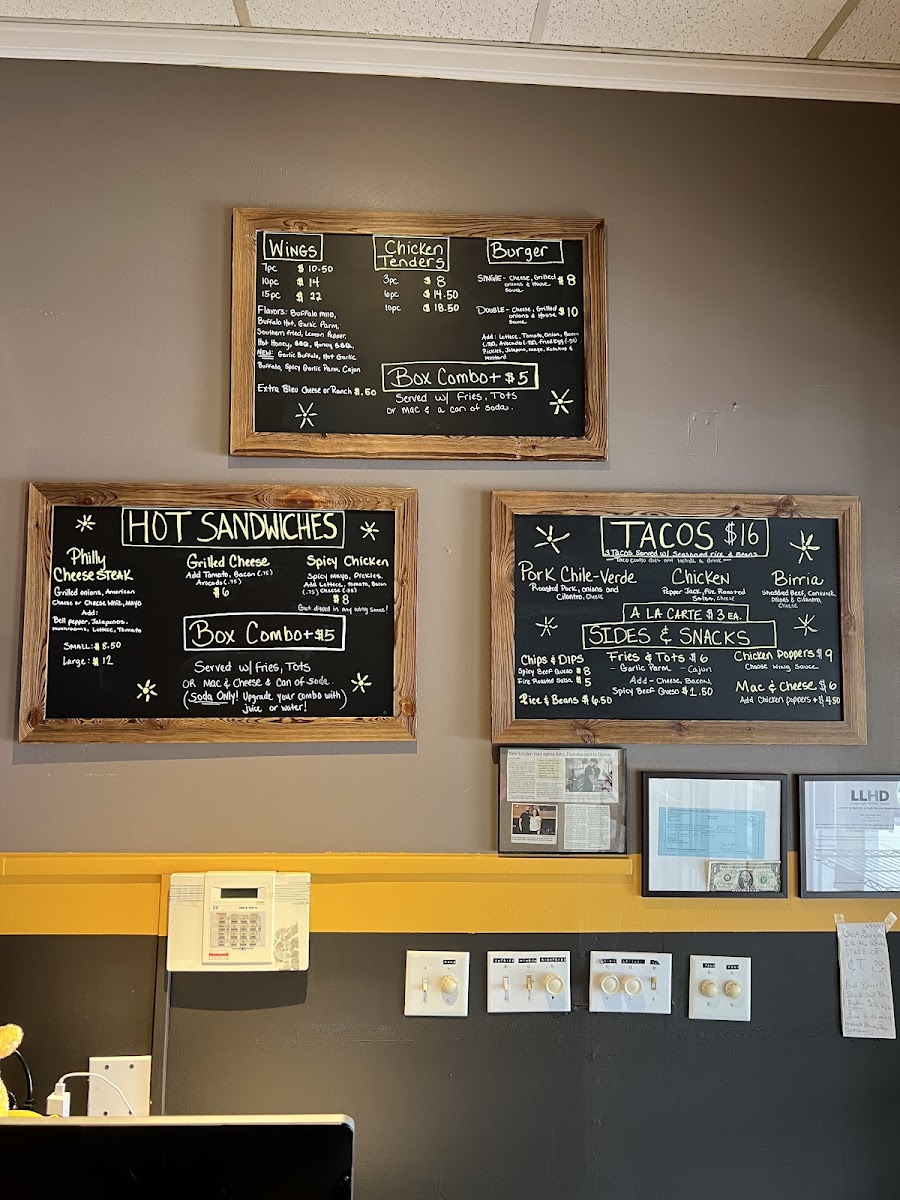 WINGS
7pc $ 10.50
10pc $ 14
15pc $ 22
Flavors: Buffalo Mild,
Buffalo Hot, Garlic Parm,
Southern Fried, Lemon Pepper,
Hot Honey, BBQ, Honey BBQ,
NEW: Garlic Buffalo, Hot Garlic
Buffalo, Spicy Garlic Parm, Cajun
Extra Bleu Cheese or Ranch $.50
Chicken
Tenders
3pc $ 8
6pc $ 14.50
10pc $ 18.50
Burger
SINGLE - Cheese, Grilled $ 8
onions & House
Sauce
DOUBLE - Cheese, Grilled $ 10
onions & House
Sauce
Add: Lettuce, Tomato, Onion, Bacon
(.75), Avocado (.75), Fried Egg
Pickles, Jalapeno, Mayo, Ketchup &
Mustard
Box Combo + $5
Served w/ Fries, Tots
or Mac & a can of soda.
HOT SANDWICHES
Philly
CheeseSTEAK
Grilled onions, American
Cheese or Cheese Whiz, Mayo
Add:
Bell pepper, Jalapenos,
Mushrooms, Lettuce, Tomato
SMALL: $ 8.50
Large: $ 12
Grilled Cheese
Add Tomato, Bacon (.75)
Avocado (.75)
$6
Spicy Chicken
Spicy Mayo, Pickles
Add Lettuce, Tomato, Bacon
(.75) Cheese
$ 8
Get dipped in any wing sauce!
Box Combo + $5
Served w/ Fries, Tots
OR Mac & Cheese & Can of Soda.
(Soda ONLY! Upgrade your combo with)
juice or water!
TACOS $16
3 TACOS Served w/ Seasoned rice & Beans
Taco combo does not include a drink
Pork Chile-Verde
Roasted Pork, onions and
Cilantro, Cheese
Chicken
Pepper Jack, Fire Roasted
Salsa, Cheese
Birria
Shredded Beef, Consumé,
Onions & Cilantro,
Cheese
A LA CARTE $3 EA.
SIDES & SNACKS
Chips & DIPS
Spicy Beef Queso $ 8
Fire Roasted Salsa $ 5
Rice & Beans $6.50
Fries & Tots $ 6
Garlic Parm - Cajun
Add - Cheese, Bacon
Spicy Beef Queso $1.50
Chicken Poppers $ 9
Choose Wing Sauce
Mac & Cheese $ 6
Add Chicken poppers + $4.50
LLHD
Honeywell
STATE OF
CT